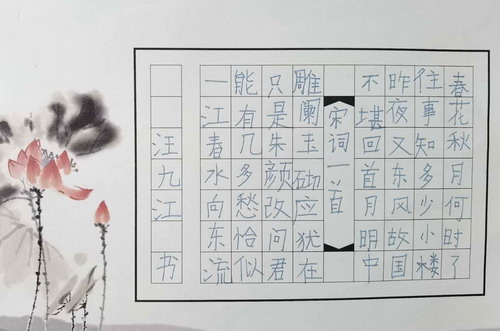 春花秋月何时了
往事知多少小楼
昨夜又东风故国
不堪回首月明中
宋词一首
雕阑玉砌应犹在
只是朱颜改问君
能有几多愁恰似
一江春水向东流
汪九江书